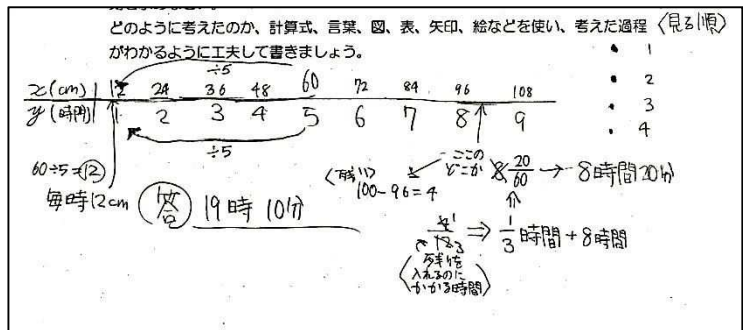 どのように考えたのか、計算式、言葉、図、表、矢印、絵などを使い、考えた過程
がわかるように工夫して書きましょう。
〈見る順〉
・ 1
・ 2
・ 3
・ 4
÷5
x(cm) 12 24 36 48 60 72 84 96 108
y(時間) 1 2 3 4 5 6 7 8 9
÷5
60÷5=12
毎時12cm
答 19時10分
〈残り〉
100-96=4
ここの
どこか
8 20/60 → 8時間20分
4/12 1/3 ⇒ 1/3時間+8時間
残りを
入れるのに
かかる時間